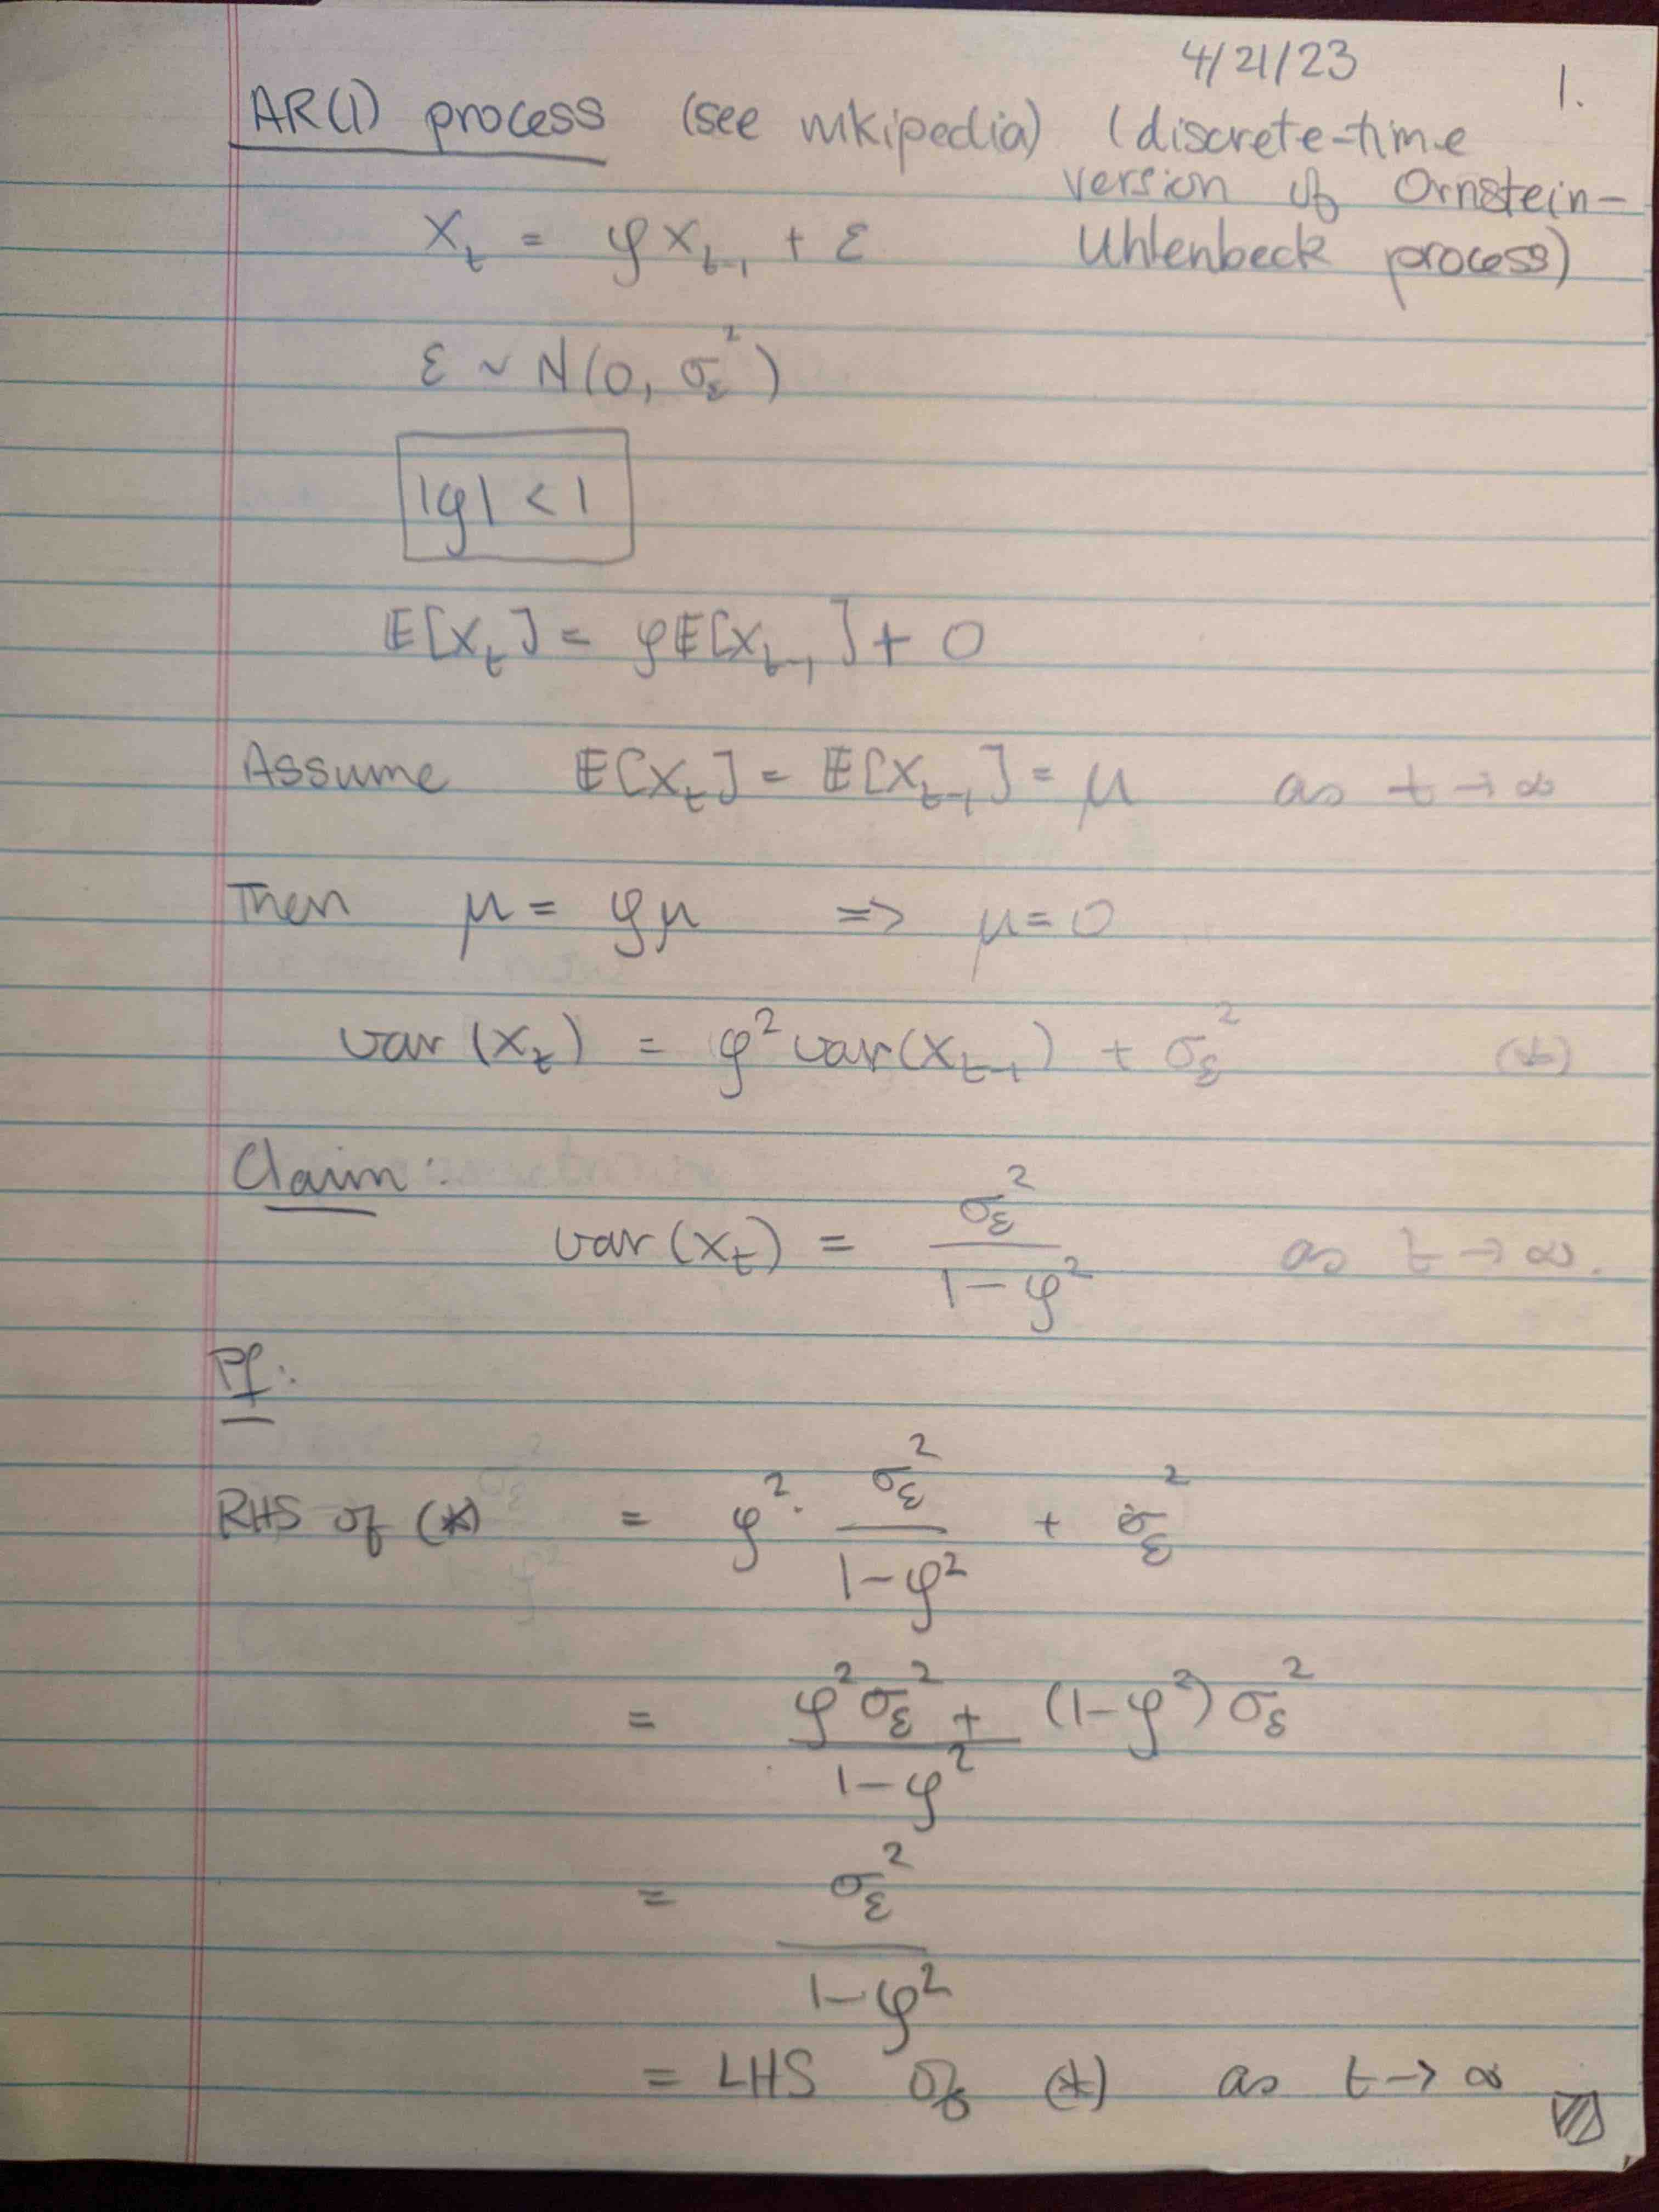 4/21/23
1.
AR(1) process (see wikipedia) (discrete-time
version of Ornstein-
X_t = φX_{t-1} + ε Uhlenbeck process)
ε ~ N(0, σ_ε^2)
|φ| < 1
𝔼[X_t] = φ𝔼[X_{t-1}] + 0
Assume 𝔼[X_t] = 𝔼[X_{t-1}] = μ as t → ∞
Then μ = φμ => μ = 0
var(X_t) = φ^2 var(X_{t-1}) + σ_ε^2 (*)
Claim:
var(X_t) = σ_ε^2 / (1-φ^2) as t → ∞.
Pf:
RHS of (*) = φ^2 · σ_ε^2 / (1-φ^2) + σ_ε^2
= (φ^2 σ_ε^2 + (1-φ^2) σ_ε^2) / (1-φ^2)
= σ_ε^2 / (1-φ^2)
= LHS of (*) as t → ∞